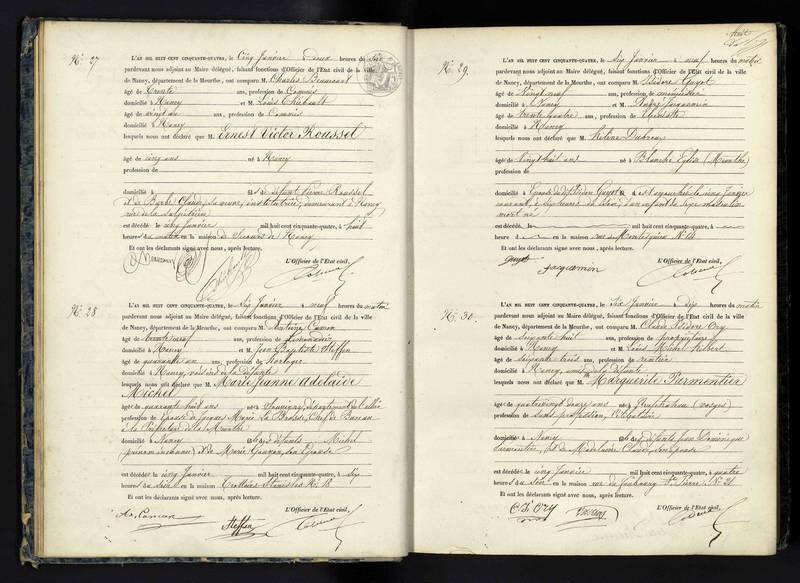 No. 27
L'AN MIL HUIT CENT CINQUANTE-QUATRE, le Cinq Janvier à deux heures du soir
pardevant nous adjoint au Maire délégué, faisant fonctions d'Officier de l'Etat civil de la ville
de Nancy, département de la Meurthe, ont comparu M. Charles Beaucourt
âgé de trente ans, profession de Commis
domicilié à Nancy et M. Louis Thiébault
âgé de vingt six ans, profession de Commis
domicilié à Nancy
lesquels nous ont déclaré que M. Ernest Victor Roussel
âgé de cinq ans né à Nancy
profession de
domicilié à fils de défunt Roussel
et de Barbe Claude, sa veuve, institutrice, demeurant à Nancy
rue de la Salpétrière
est décédé le cinq janvier mil huit cent cinquante-quatre, à huit
heures du matin en la maison de Secours de Nancy
Et ont les déclarants signé avec nous, après lecture.
L'Officier de l'Etat civil,
No. 28
L'AN MIL HUIT CENT CINQUANTE-QUATRE, le Six Janvier à neuf heures du matin
pardevant nous adjoint au Maire délégué, faisant fonctions d'Officier de l'Etat civil de la ville
de Nancy, département de la Meurthe, ont comparu M. Antoine Camon
âgé de trente neuf ans, profession de Limonadier
domicilié à Nancy et M. Jean Baptiste Steffen
âgé de quarante un ans, profession de Horloger
domicilié à Nancy, voisins de la défunte
lesquels nous ont déclaré que M. Marie Jeanne Adélaïde
Michel
âgé de quarante huit ans né à département de l'allier
profession de Epouse de Jacques Marie La Brosse, Chef de Bureau
à la Préfecture de la Meurthe
domicilié à Nancy fille des défunts Michel
(prénom inconnu) et de Marie son Epouse
est décédé le cinq Janvier mil huit cent cinquante-quatre, à six
heures du soir en la maison Trottoirs Stanislas No. 18
Et ont les déclarants signé avec nous, après lecture.
L'Officier de l'Etat civil,
Steffen
No. 29.
L'AN MIL HUIT CENT CINQUANTE-QUATRE, le six Janvier à neuf heures du matin
pardevant nous adjoint au Maire délégué, faisant fonctions d'Officier de l'Etat civil de la ville
de Nancy, département de la Meurthe, ont comparu M. Isidore Guyot
âgé de vingt neuf ans, profession de menuisier
domicilié à Nancy et M. Jacquemin
âgé de trente quatre ans, profession de
domicilié à Nancy
lesquels nous ont déclaré que M. Hélène Dubreux
âgé de vingt huit ans né à Blanche Eglise (Meurthe)
profession de
domicilié à Epouse dudit Isidore Guyot est accouchée le cinq Janvier
courant, à sept heures du soir, d'un enfant du sexe masculin
mort né
est décédé le mil huit cent cinquante-quatre, à
heures d en la maison rue de Montesquieu No. 14
Et ont les déclarants signé avec nous, après lecture.
L'Officier de l'Etat civil,
Guyot
Jacquemin
No. 30.
L'AN MIL HUIT CENT CINQUANTE-QUATRE, le Six Janvier à dix heures du matin
pardevant nous adjoint au Maire délégué, faisant fonctions d'Officier de l'Etat civil de la ville
de Nancy, département de la Meurthe, ont comparu M. Claude Isidore Ory
âgé de soixante huit ans, profession de propriétaire
domicilié à Nancy et M. Louis Michel
âgé de soixante trois ans, profession de rentier
domicilié à Nancy, amis de la défunte
lesquels nous ont déclaré que M. Marguerite Parmentier
âgé de quatrevingt douze ans né à Neufchateau (vosges)
profession de sans profession, Célibataire
domicilié à Nancy fille des défunts Jean Dominique
Parmentier, et de Madeleine Claude, son épouse
est décédé le cinq Janvier mil huit cent cinquante-quatre, à quatre
heures du soir en la maison rue du faubourg St. Pierre, No. 21
Et ont les déclarants signé avec nous, après lecture.
L'Officier de l'Etat civil,
C. I. ORY